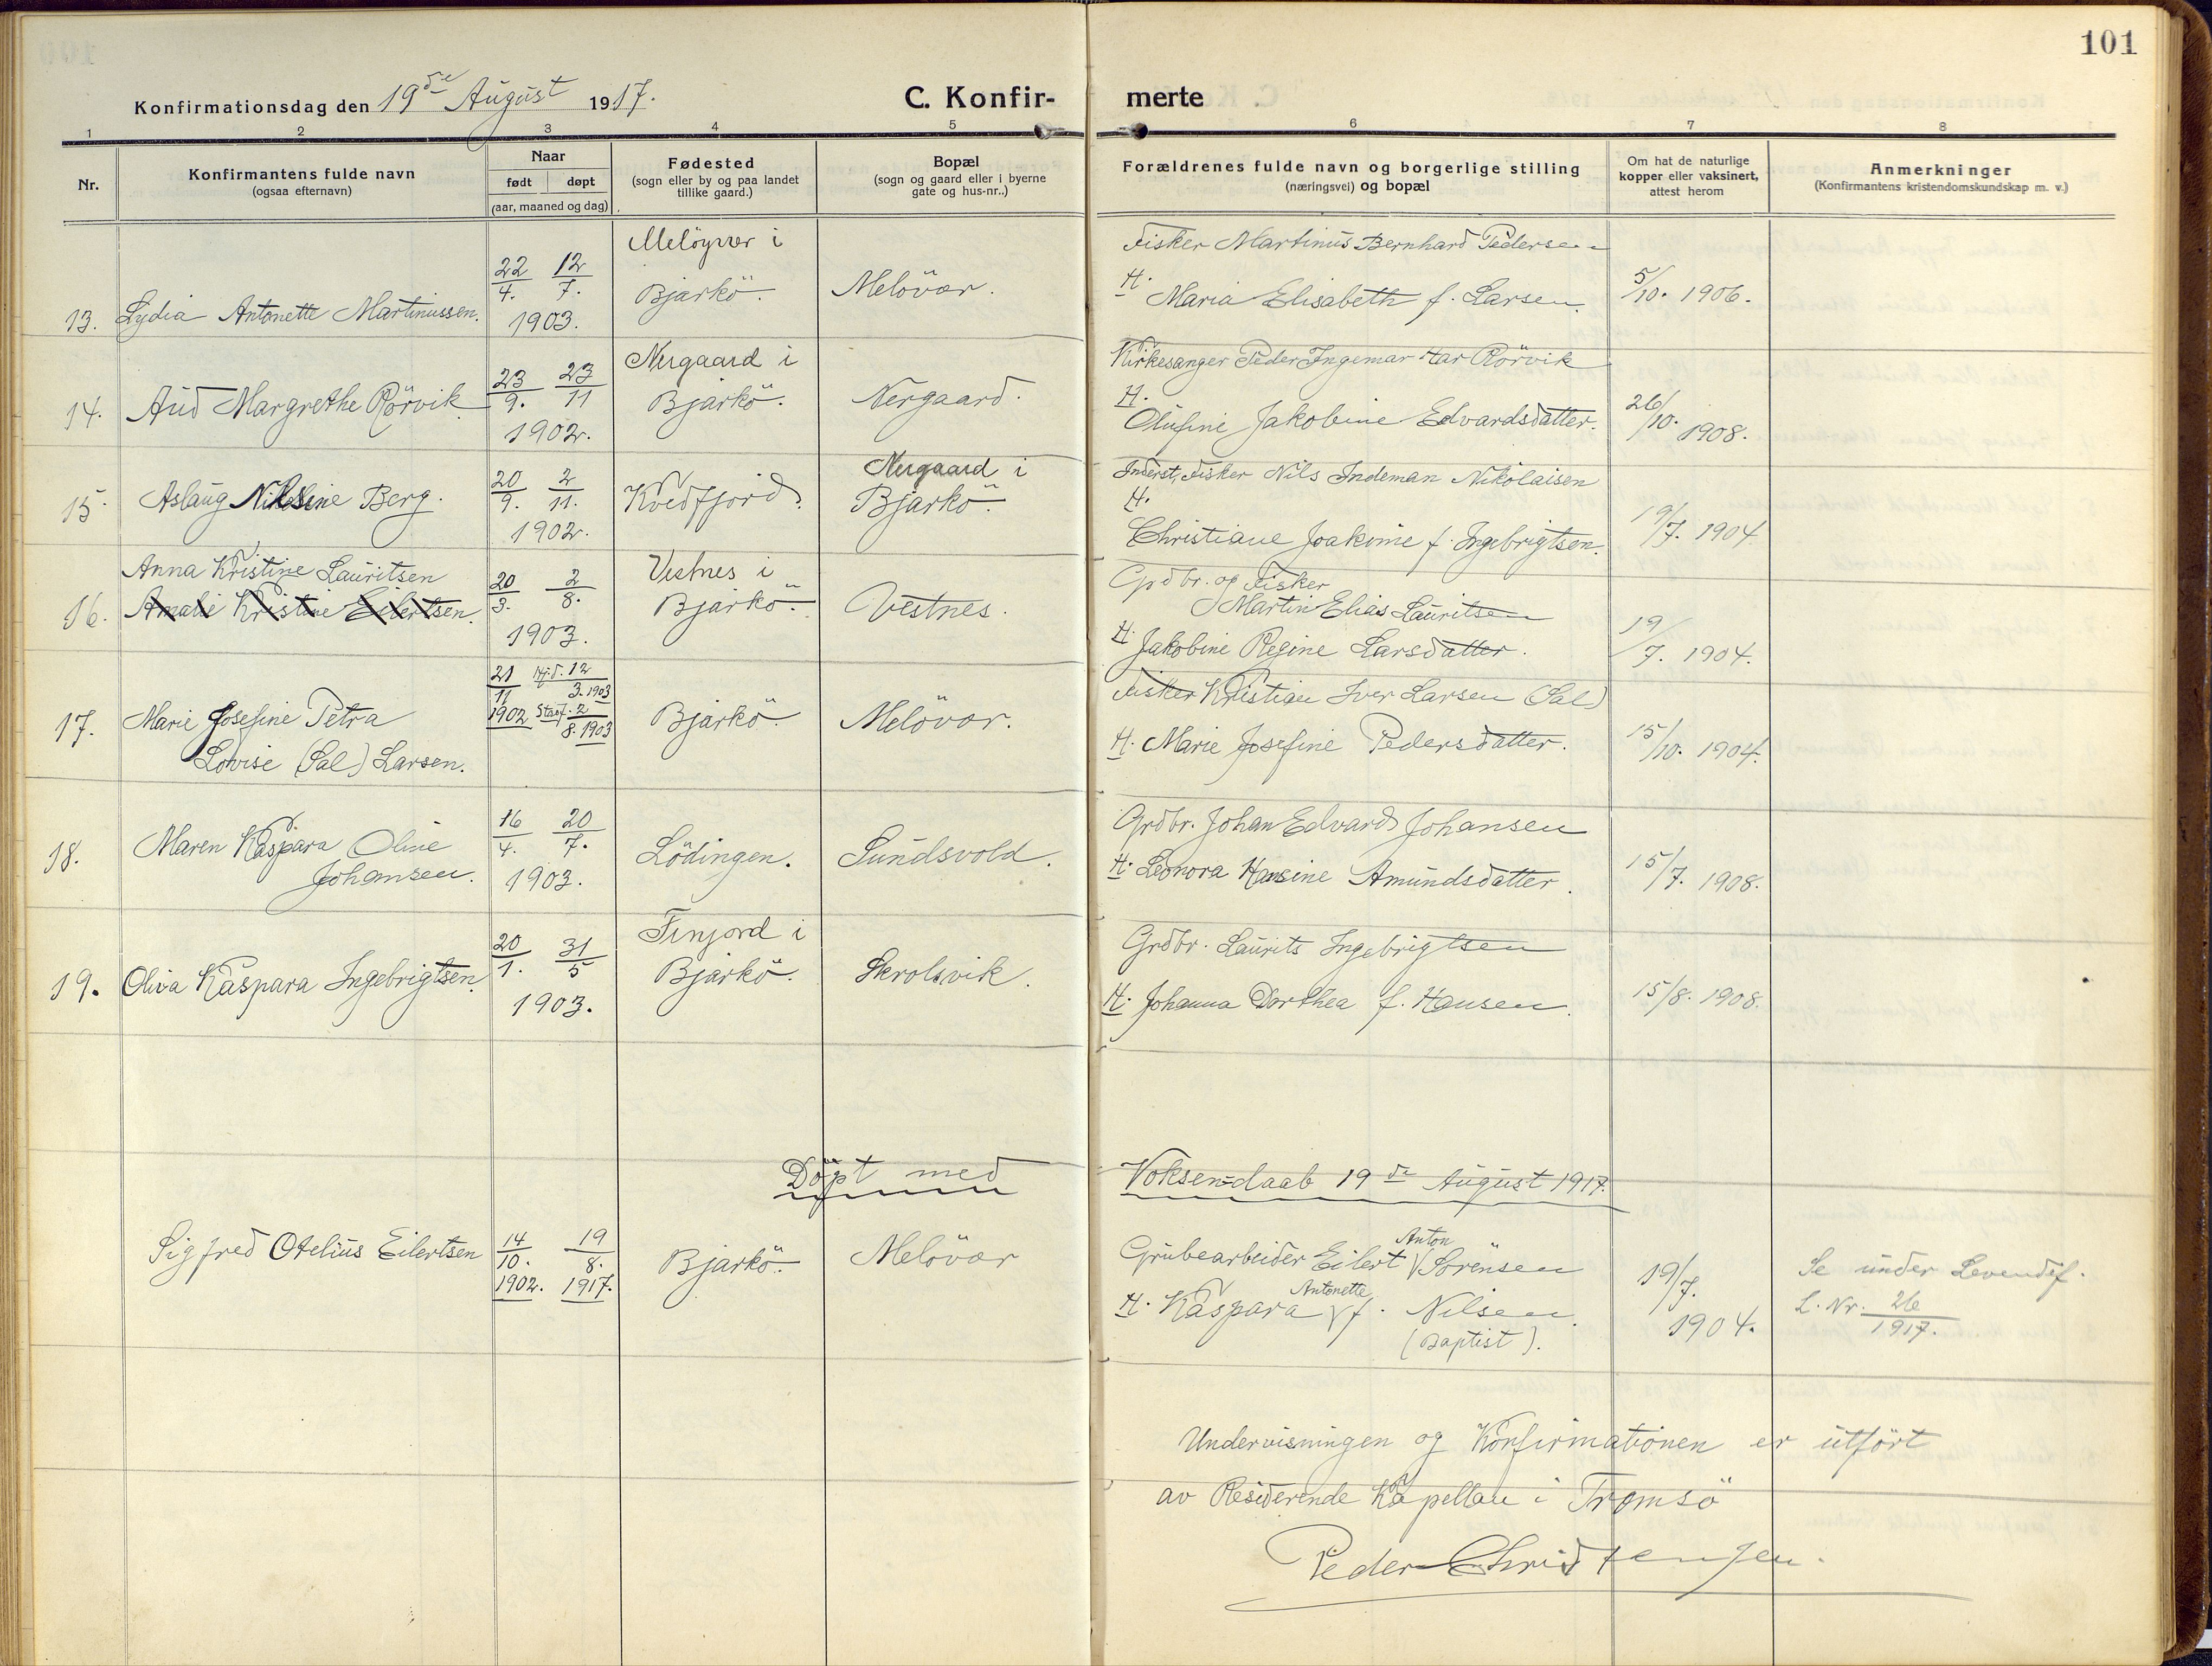 101
Konfirmationsdag den 19de August 1917.
C. Konfir-merte
1 2 3 4 5 6 7 8
Nr.
Konfirmantens fulde navn
(ogsaa efternavn)
Naar
født døpt
(aar, maaned og dag)
Fødested
(sogn eller by og paa landet
tillike gaard.)
Bopæl
(sogn og gaard eller i byerne
gate og hus-nr.,)
Forældrenes fulde navn og borgerlige stilling
(næringsvei) og bopæl
Om hat de naturlige
kopper eller vaksinert,
attest herom
Anmerkninger
(Konfirmantens kristendomskundskap m. v.)
13. Lydia Antonette Martinussen.
22/4. 12/7.
1903.
Melöyvær i
Bjarkö.
Melövær.
Fisker Martinus Bernhard Pedersen
H. Maria Elisabeth f. Larsen.
5/10. 1906.
14. Aud Margrethe Rörvik
23/9. 23/11
1902.
Nergaard i
Bjarkö.
Nergaard.
Kirkesanger Peder Ingemar Rörvik
H.
Olufine Jakobine Edvardsdatter.
26/10. 1908.
15. Aslaug Nilsine Berg.
20/9. 2/11.
1902.
Kvedfjord.
Nergaard i
Bjarkö.
Inderst, Fisker Nils Indeman Nikolaisen
H.
Christiane Joakime f. Ingebrigtsen.
19/7. 1904
Anna Kristine Lauritsen
16. Amalie Kristine Eilertsen.
20/3. 2/8.
1903.
Vestnes i
Bjarkö.
Vestnes.
Grdbr. og Fisker
Martin Elias Lauritsen
H. Jakobine Regine Larsdatter.
19/7. 1904.
17. Marie Josefine Petra
Lovise (Sal) Larsen.
21/11 1902
Hj.d. 12/3. 1903
Stadf. 2/8. 1903
Bjarkö.
Melövær.
Fisker Kristian Iver Larsen (Sal)
H. Marie Josefine Pedersdatter.
15/10. 1904.
18. Maren Kaspara Oline
Johansen.
16/4. 20/7.
1903.
Lödingen.
Sundsvold.
Grdbr. Johan Edvard Johansen
H. Leonora Hansine Amundsdatter.
15/7. 1908.
19. Oliva Kaspara Ingebrigtsen.
20/1. 31/5
1903.
Finjord i
Bjarkö.
Skrolsvik.
Grdbr. Laurits Ingebrigtsen
H. Johanna Dorthea f. Hansen.
15/8. 1908.
Döpt med Voksen=daab 19de August 1917.
Sigfred Otelius Eilertsen
14/10. 1902. 19/8. 1917.
Bjarkö.
Melövær
Grubearbeider Eilert Anton Sörensen
H. Kaspara Antonette f. Nilsen.
(Baptist).
19/7.
1904.
Se under Levendef.
L. Nr. 26/1917.
Undervisningen og Konfirmationen er utfört
av Residerende Kapellan i Tromsö
Peder Christensen.